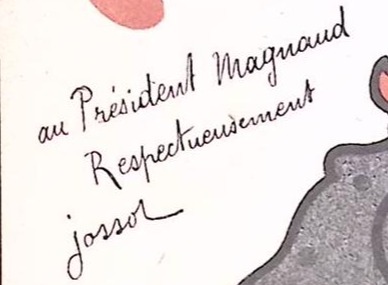 au Président Magnaud
Respectueusement
jossot